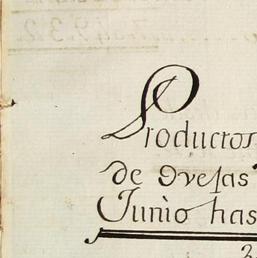 Productos
de ovejas
Junio has